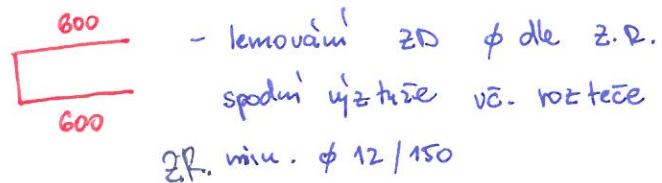 600
- lemování ZD ϕ dle Z.R.
spodní výztuže vč. rozteče
600
Z.R. min. ϕ 12/150